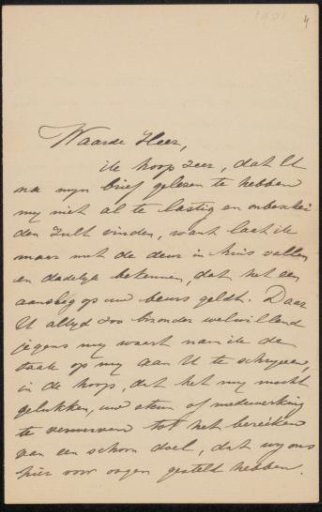 4
Waarde Heer,
ik hoop zeer, dat U
na mijn brief gelezen te hebben
mij niet al te lastig en onbeschei
den zult vinden, want laat ik
maar met de deur in huis vallen
en dadelijk bekennen, dat het een
aanslag op uw beurs geldt. Daar
U altijd zoo bizonder welwillend
jegens mij waart nam ik de
taak op mij aan U te schrijven,
in de hoop, dat het mij mocht
gelukken, uw steun of medewerking
te verwerven tot het bereiken
van een schoon doel, dat wij ons
hier voor oogen gesteld hebben.